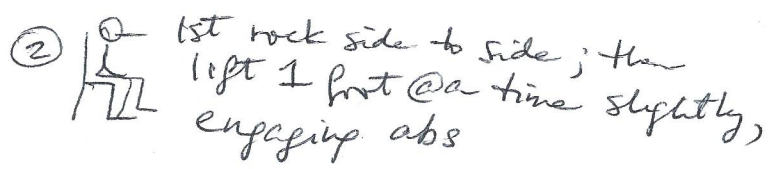 ② 1st rock side to side; then
lift 1 foot @a time slightly,
engaging abs